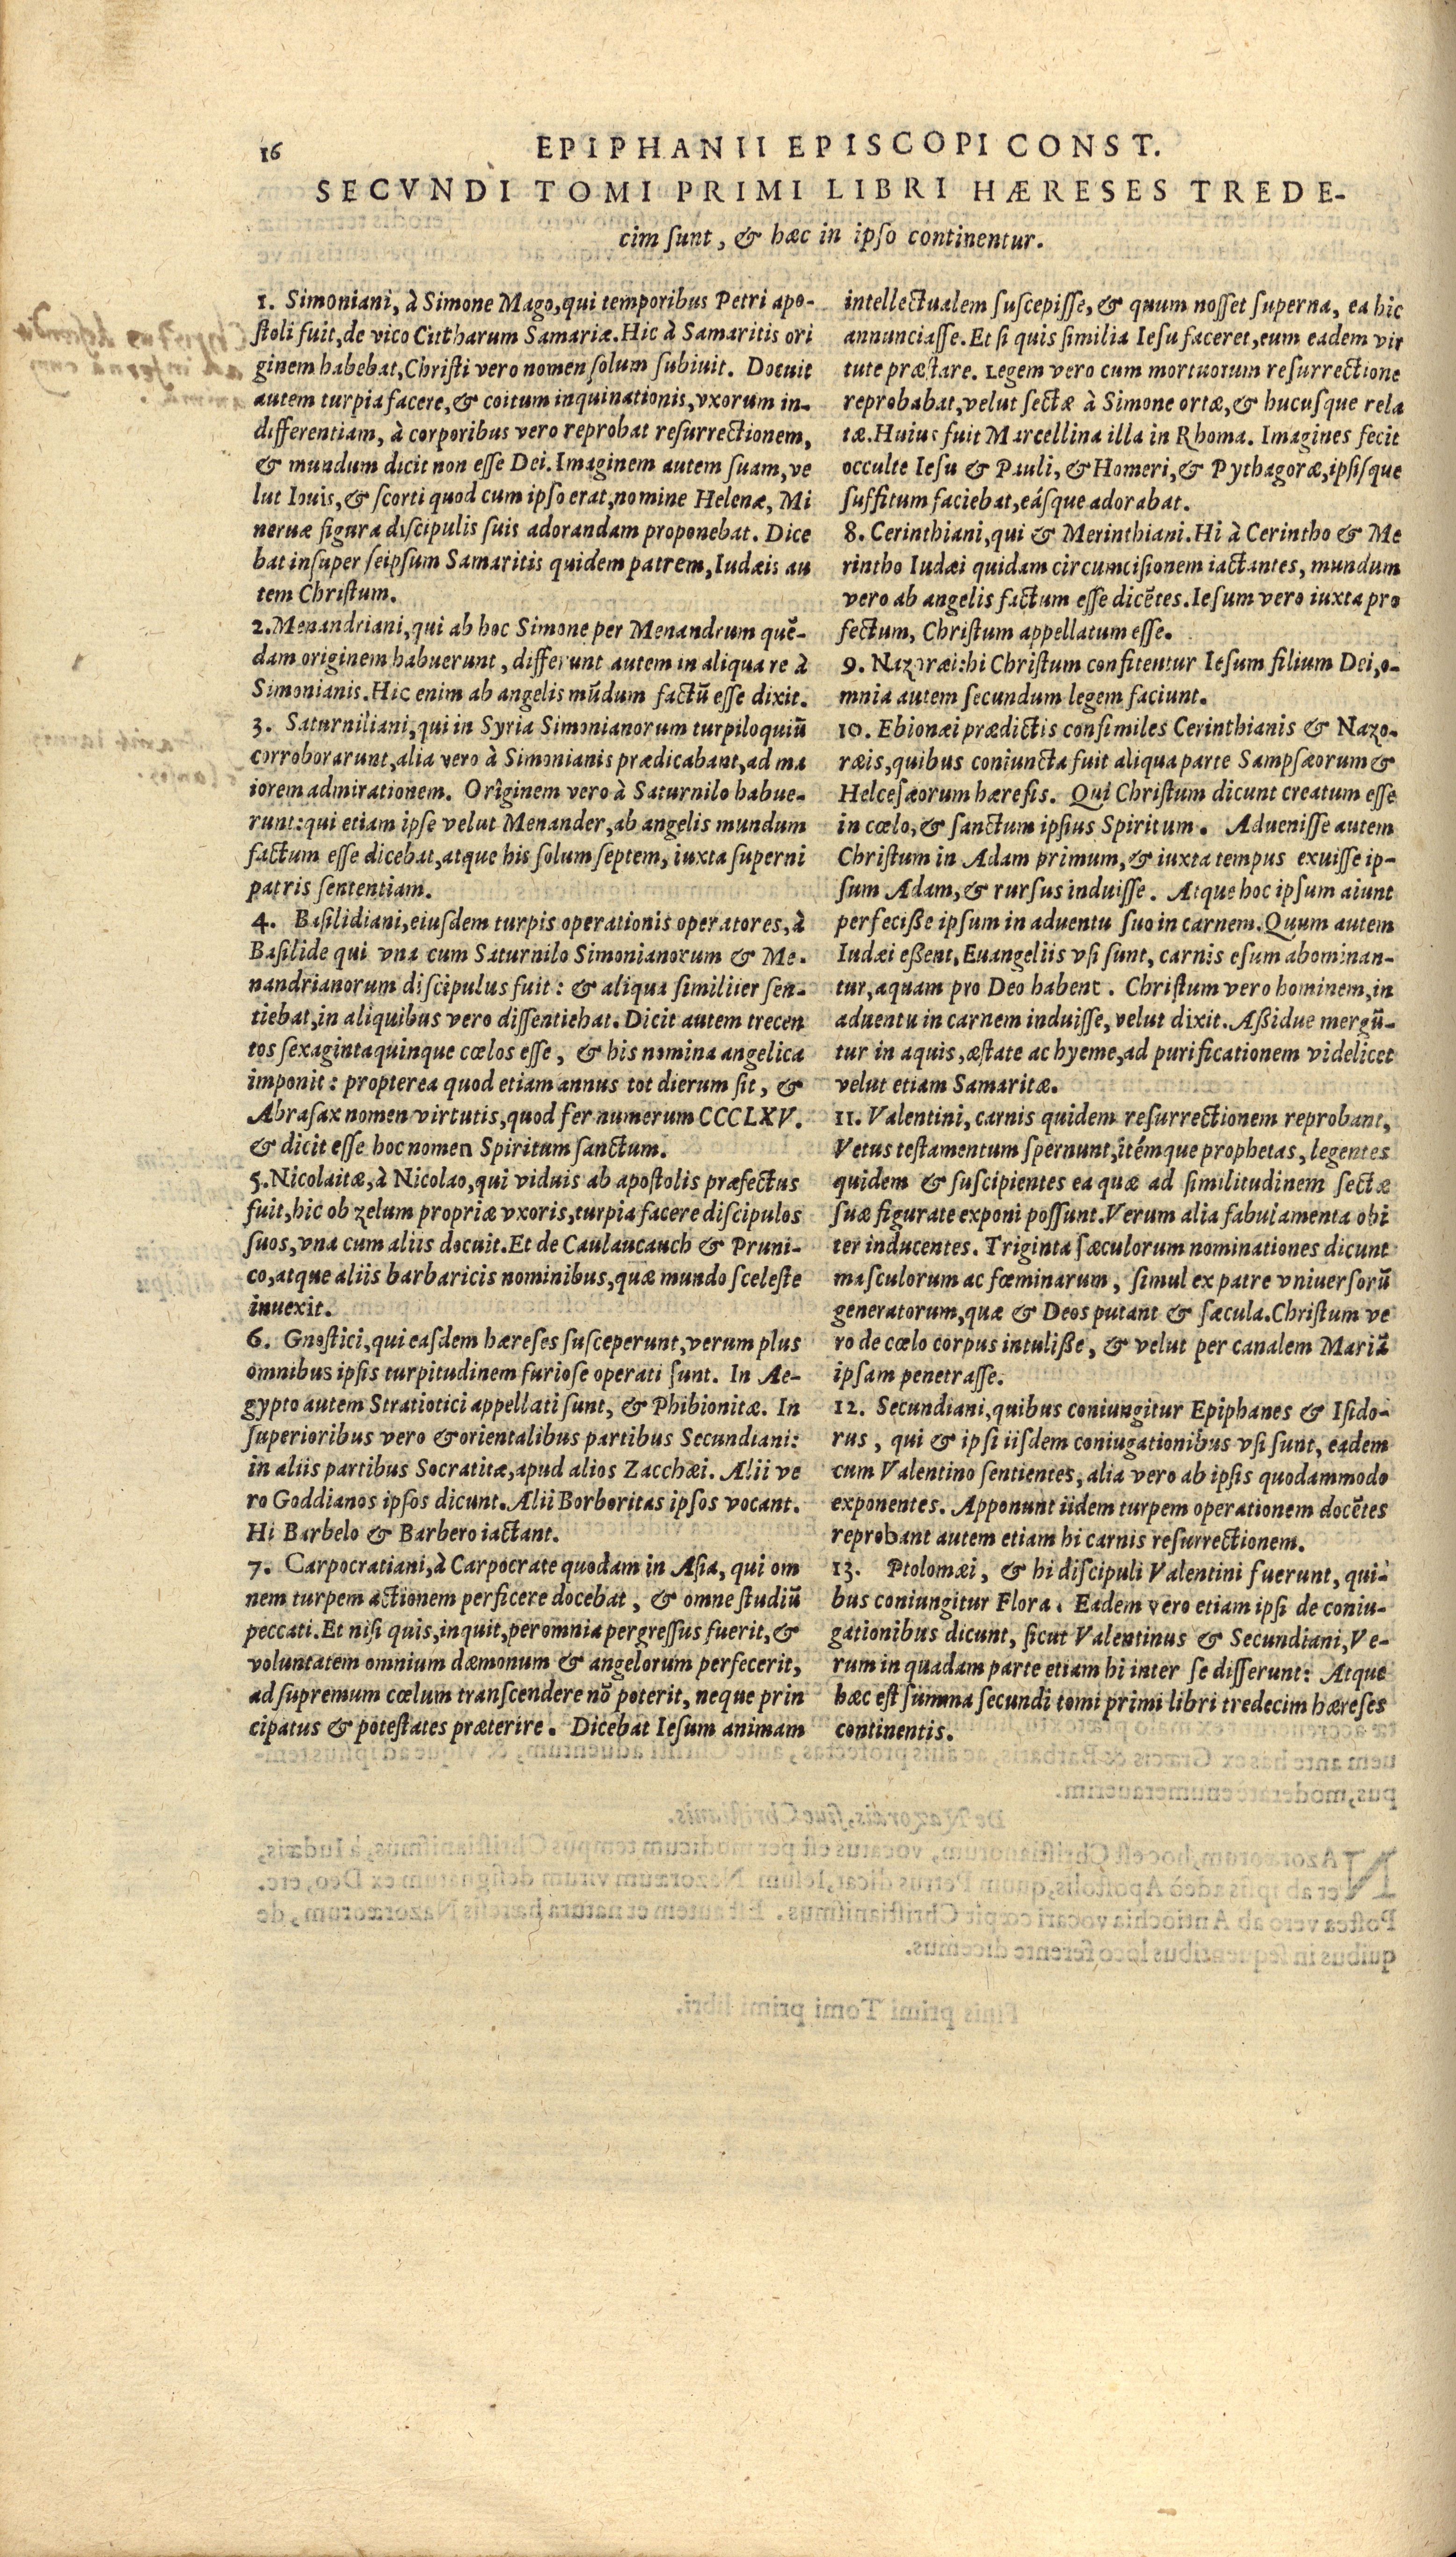 16
EPIPHANII EPISCOPI CONST.
SECVNDI TOMI PRIMI LIBRI HÆRESES TREDE-
cim ſunt, & hæc in ipſo continentur.
1. Simoniani, à Simone Mago, qui temporibus Petri apo-
ſtoli fuit, de vico Cittharum Samariæ. Hic à Samaritis ori
ginem habebat, Chriſti vero nomen ſolum ſubiuit. Docuit
autem turpia facere, & coitum inquinationis, vxorum in-
differentiam, à corporibus vero reprobat reſurrectionem,
& mundum dicit non eſſe Dei. Imaginem autem ſuam, ve
lut Iouis, & ſcorti quod cum ipſo erat, nomine Helenæ, Mi
neruæ figura diſcipulis ſuis adorandam proponebat. Dice
bat inſuper ſeipſum Samaritis quidem patrem, Iudæis au
tem Chriſtum.
2. Menandriani, qui ab hoc Simone per Menandrum quē-
dam originem habuerunt, differunt autem in aliqua re à
Simonianis. Hic enim ab angelis mūdum factū eſſe dixit.
3. Saturniliani, qui in Syria Simonianorum turpiloquiū
corroborarunt, alia vero à Simonianis prædicabant, ad ma
iorem admirationem. Originem vero à Saturnilo habue-
runt: qui etiam ipſe velut Menander, ab angelis mundum
factum eſſe dicebat, atque his ſolum ſeptem, iuxta ſuperni
patris ſententiam.
4. Baſilidiani, eiuſdem turpis operationis operatores, à
Baſilide qui vna cum Saturnilo Simonianorum & Me-
nandrianorum diſcipulus fuit: & aliqua ſimiliter ſen-
tiebat, in aliquibus vero diſſentiebat. Dicit autem trecen
tos ſexagintaquinque cœlos eſſe, & his nomina angelica
imponit: propterea quod etiam annus tot dierum ſit, &
Abraſax nomen virtutis, quod fer numerum CCCLXV.
& dicit eſſe hoc nomen Spiritum ſanctum.
5. Nicolaitæ, à Nicolao, qui viduis ab apoſtolis præfectus
fuit, hic ob zelum propriæ vxoris, turpia facere diſcipulos
ſuos, vna cum aliis docuit. Et de Caulaucauch & Pruni-
co, atque aliis barbaricis nominibus, quæ mundo ſceleſte
inuexit.
6. Gnoſtici, qui eaſdem hæreſes ſuſceperunt, verum plus
omnibus ipſis turpitudinem furioſe operati ſunt. In Ae-
gypto autem Stratiotici appellati ſunt, & Phibionitæ. In
ſuperioribus vero & orientalibus partibus Secundiani:
in aliis partibus Socratitæ, apud alios Zacchæi. Alii ve
ro Goddianos ipſos dicunt. Alii Borboritas ipſos vocant.
Hi Barbelo & Barbero iactant.
7. Carpocratiani, à Carpocrate quodam in Aſia, qui om
nem turpem actionem perficere docebat, & omne ſtudiū
peccati. Et niſi quis, inquit, per omnia pergreſſus fuerit, &
voluntatem omnium dæmonum & angelorum perfecerit,
ad ſupremum cœlum tranſcendere nō poterit, neque prin
cipatus & poteſtates præterire. Dicebat Ieſum animam
intellectualem ſuſcepiſſe, & quum noſſet ſuperna, ea hic
annunciaſſe. Et ſi quis ſimilia Ieſu faceret, eum eadem vir
tute præſtare. Legem vero cum mortuorum reſurrectione
reprobabat, velut ſectæ à Simone ortæ, & hucuſque rela
tæ. Huius fuit Marcellina illa in Rhoma. Imagines fecit
occulte Ieſu & Pauli, & Homeri, & Pythagoræ, ipſiſque
ſuffitum faciebat, eáſque adorabat.
8. Cerinthiani, qui & Merinthiani. Hi à Cerintho & Me
rintho Iudæi quidam circumciſionem iactantes, mundum
vero ab angelis factum eſſe dicētes. Ieſum vero iuxta pro
fectum, Chriſtum appellatum eſſe.
9. Nazoræi: hi Chriſtum confitentur Ieſum filium Dei, o-
mnia autem ſecundum legem faciunt.
10. Ebionæi prædictis conſimiles Cerinthianis & Nazo-
ræis, quibus coniuncta fuit aliqua parte Sampſæorum &
Helceſæorum hæreſis. Qui Chriſtum dicunt creatum eſſe
in cœlo, & ſanctum ipſius Spiritum. Adueniſſe autem
Chriſtum in Adam primum, & iuxta tempus exuiſſe ip-
ſum Adam, & rurſus induiſſe. Atque hoc ipſum aiunt
perfeciße ipſum in aduentu ſuo in carnem. Quum autem
Iudæi eßent, Euangeliis vſi ſunt, carnis eſum abominan-
tur, aquam pro Deo habent. Chriſtum vero hominem, in
aduentu in carnem induiſſe, velut dixit. Aßidue mergū-
tur in aquis, æſtate ac hyeme, ad purificationem videlicet
velut etiam Samaritæ.
11. Valentini, carnis quidem reſurrectionem reprobant,
Vetus teſtamentum ſpernunt, itémque prophetas, legentes
quidem & ſuſcipientes ea quæ ad ſimilitudinem ſectæ
ſuæ figurate exponi poſſunt. Verum alia fabulamenta obi
ter inducentes. Triginta ſæculorum nominationes dicunt
maſculorum ac fœminarum, ſimul ex patre vniuerſorū
generatorum, quæ & Deos putant & ſæcula. Chriſtum ve
ro de cœlo corpus intuliße, & velut per canalem Mariā
ipſam penetraſſe.
12. Secundiani, quibus coniungitur Epiphanes & Iſido-
rus, qui & ipſi iiſdem coniugationibus vſi ſunt, eadem
cum Valentino ſentientes, alia vero ab ipſis quodammodo
exponentes. Apponunt iidem turpem operationem docētes
reprobant autem etiam hi carnis reſurrectionem.
13. Ptolomæi, & hi diſcipuli Valentini fuerunt, qui-
bus coniungitur Flora. Eadem vero etiam ipſi de coniu-
gationibus dicunt, ſicut Valentinus & Secundiani, Ve-
rum in quadam parte etiam hi inter ſe differunt: Atque
hæc eſt ſumma ſecundi tomi primi libri tredecim hæreſes
continentis.